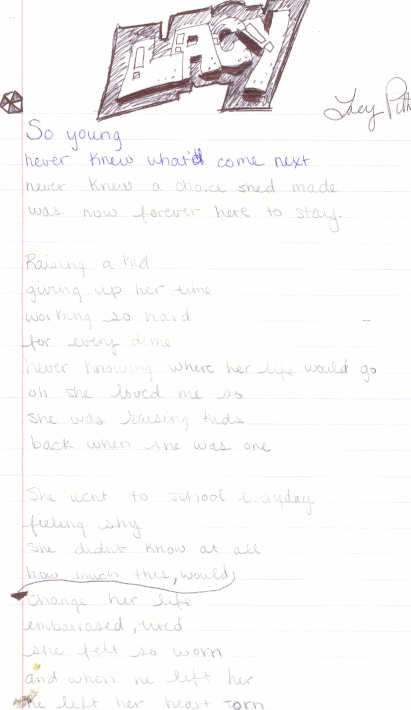 LACY
Lacy
So young
never knew what'd come next
never knew a choice shed made
was now forever here to stay.
Raising a kid
giving up her time
working so hard
for every dime
never knowing where her life would go
oh she loved me so
she was raising kids
back when she was one
She went to school everyday
feeling shy
she didnt know at all
how much this, would
change her life
embarrased, tired
she felt so worn
and when he left her
he left her heart torn